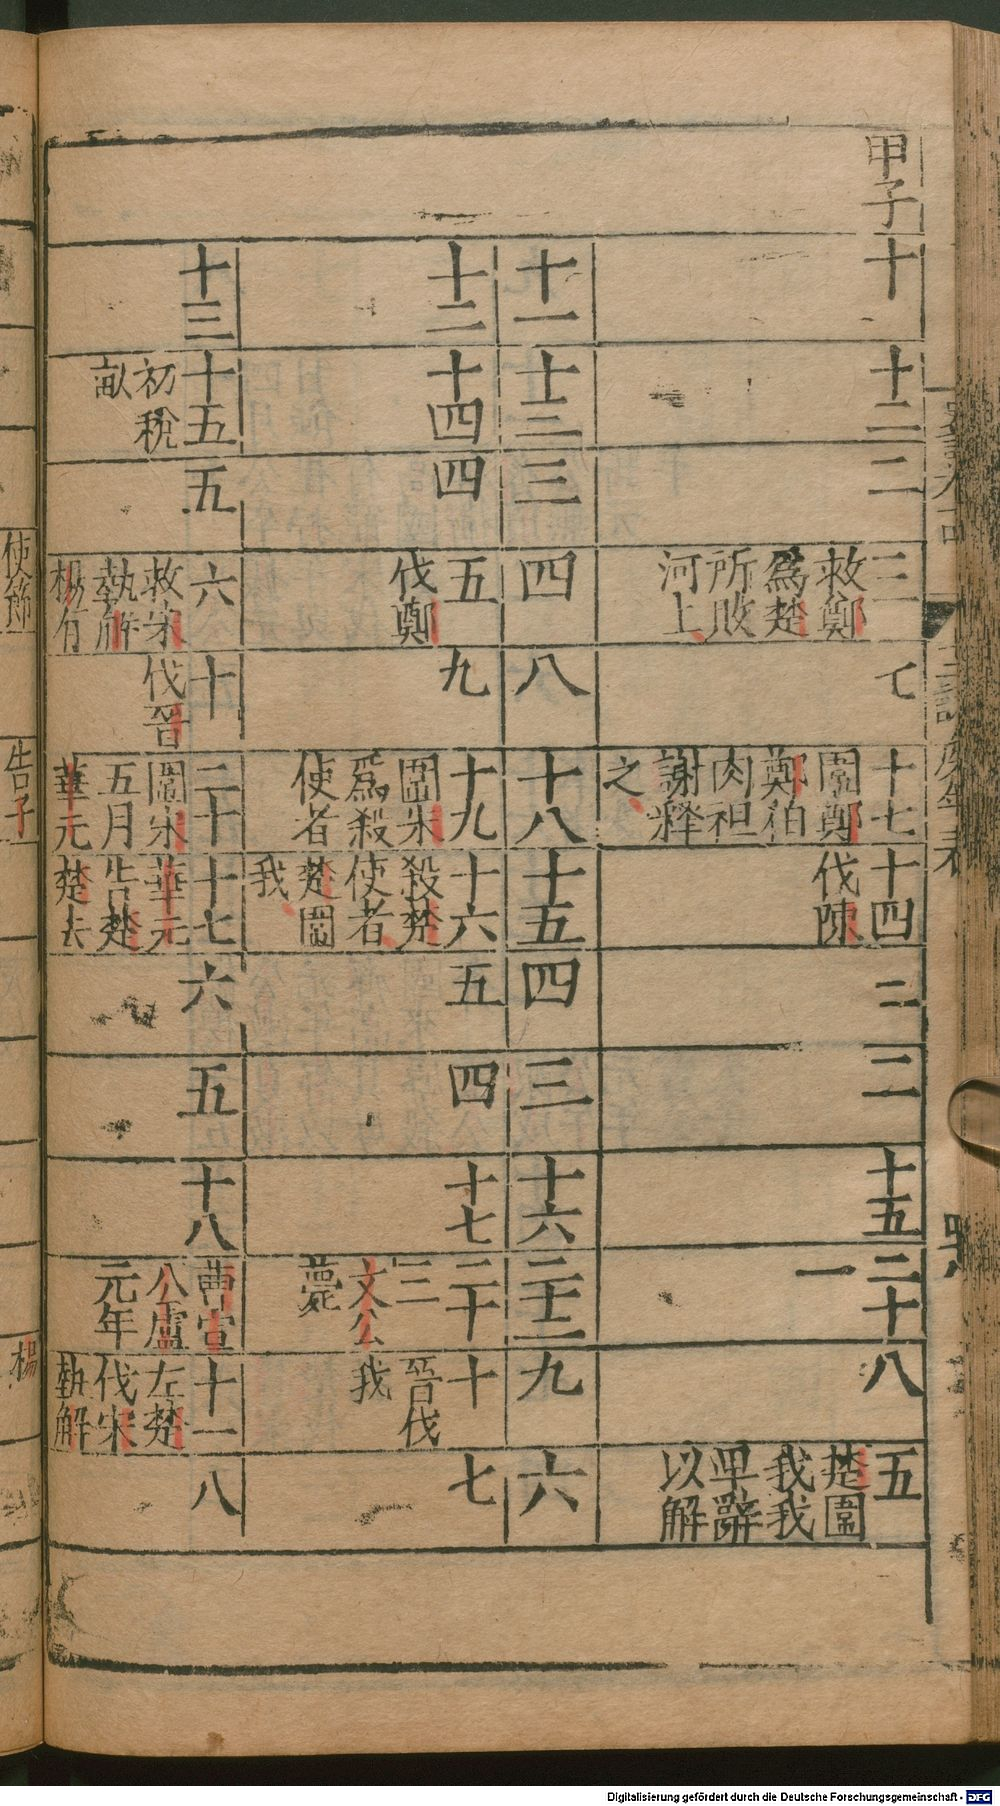 甲子
十
十二
二
三
救鄭
爲楚
所敗
河上
十七
圍鄭
鄭伯
肉袒
謝釋
之
十四
伐陳
二
二
十五
二十
一
八
五
楚圍
我我
卑辭
以解
十一
十三
三
四
八
十八
十五
四
三
十六
二十二
九
六
十二
十四
四
五
伐鄭
九
十九
圍宋
爲殺
使者
十六
殺楚
使者
楚圍
我
五
四
十七
二十
三
文公
薨
十
晉伐
我
七
十三
十五
初稅
畝
五
六
救宋
執解
楊有
十
伐晉
二十
圍宋
五月
華元
十七
華元
告楚
楚去
六
五
十八
曹宣
公盧
元年
十一
左楚
伐宋
執解
八
使節
告子
楊
Digitalisierung gefördert durch die Deutsche Forschungsgemeinschaft - DFG